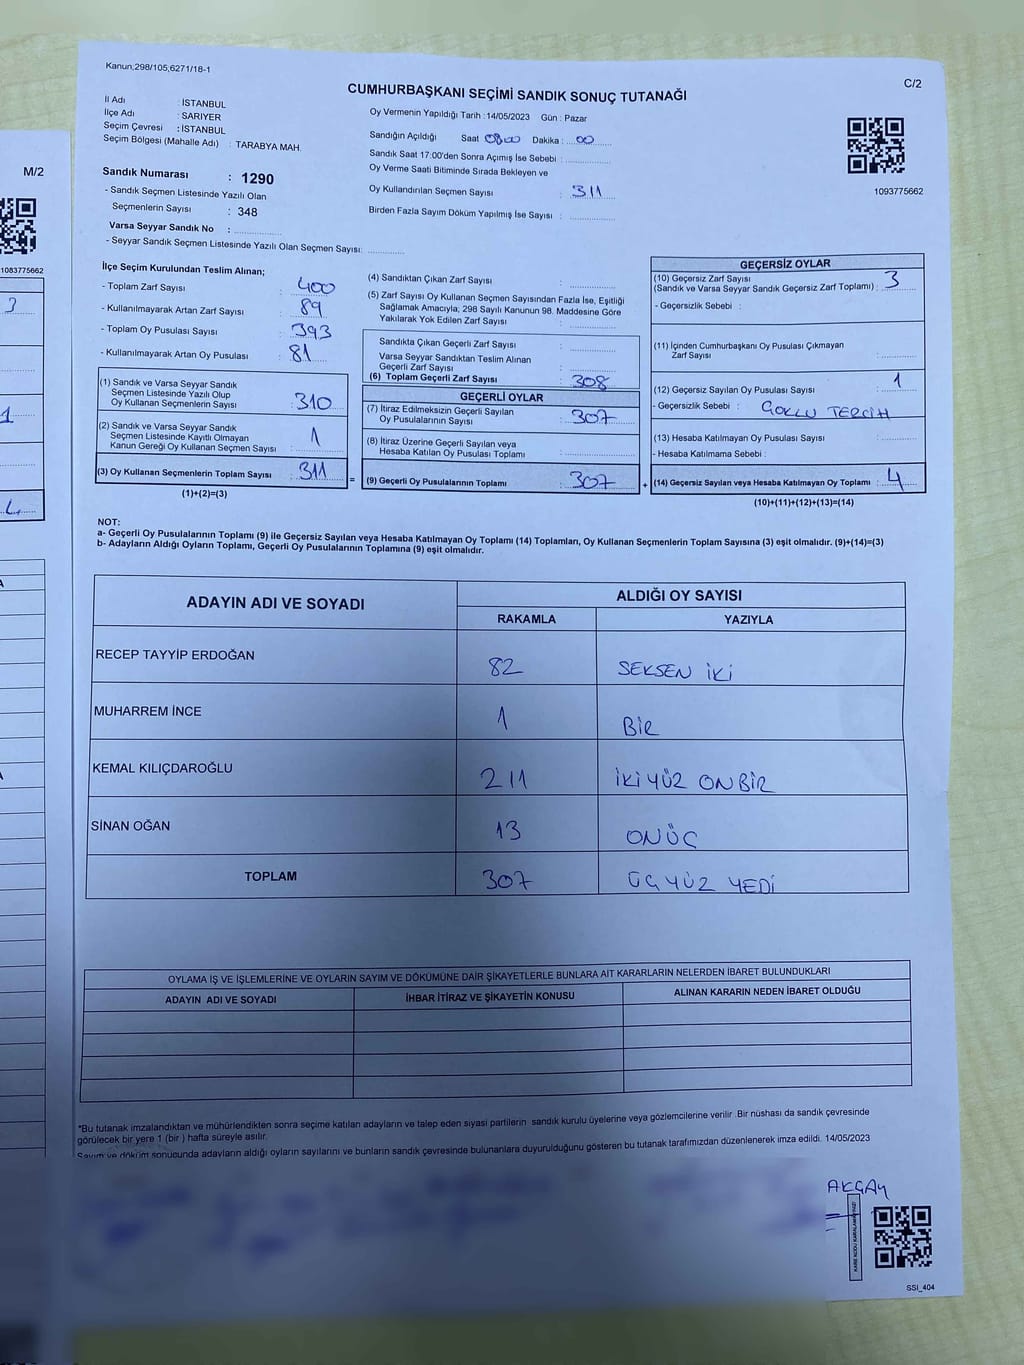 Kanun,298/105,6271/18-1
C/2
CUMHURBAŞKANI SEÇİMİ SANDIK SONUÇ TUTANAĞI
İl Adı : İSTANBUL
İlçe Adı : SARIYER
Seçim Çevresi : İSTANBUL
Seçim Bölgesi (Mahalle Adı) : TARABYA MAH.
Sandık Numarası : 1290
- Sandık Seçmen Listesinde Yazılı Olan
Seçmenlerin Sayısı : 348
Varsa Seyyar Sandık No :
- Seyyar Sandık Seçmen Listesinde Yazılı Olan Seçmen Sayısı:
Oy Vermenin Yapıldığı Tarih : 14/05/2023 Gün : Pazar
Sandığın Açıldığı Saat 0800 Dakika : 00
Sandık Saat 17:00'den Sonra Açımış İse Sebebi :
Oy Verme Saati Bitiminde Sırada Bekleyen ve
Oy Kullandırılan Seçmen Sayısı : 311
Birden Fazla Sayım Döküm Yapılmış İse Sayısı :
1093775662
İlçe Seçim Kurulundan Teslim Alınan;
- Toplam Zarf Sayısı : 400
- Kullanılmayarak Artan Zarf Sayısı : 89
- Toplam Oy Pusulası Sayısı : 393
- Kullanılmayarak Artan Oy Pusulası : 81
(1) Sandık ve Varsa Seyyar Sandık
Seçmen Listesinde Yazılı Olup
Oy Kullanan Seçmenlerin Sayısı : 310
(2) Sandık ve Varsa Seyyar Sandık
Seçmen Listesinde Kayıtlı Olmayan
Kanun Gereği Oy Kullanan Seçmen Sayısı : 1
(3) Oy Kullanan Seçmenlerin Toplam Sayısı : 311
(1)+(2)=(3)
=
(4) Sandıktan Çıkan Zarf Sayısı :
(5) Zarf Sayısı Oy Kullanan Seçmen Sayısından Fazla İse, Eşitliği
Sağlamak Amacıyla; 298 Sayılı Kanunun 98. Maddesine Göre
Yakılarak Yok Edilen Zarf Sayısı :
Sandıkta Çıkan Geçerli Zarf Sayısı :
Varsa Seyyar Sandıktan Teslim Alınan
Geçerli Zarf Sayısı :
(6) Toplam Geçerli Zarf Sayısı : 308
GEÇERLİ OYLAR
(7) İtiraz Edilmeksizin Geçerli Sayılan
Oy Pusulasının Sayısı : 307
(8) İtiraz Üzerine Geçerli Sayılan veya
Hesaba Katılan Oy Pusulası Toplamı :
(9) Geçerli Oy Pusulalarının Toplamı : 307
+
GEÇERSİZ OYLAR
(10) Geçersiz Zarf Sayısı
(Sandık ve Varsa Seyyar Sandık Geçersiz Zarf Toplamı) : 3
- Geçersizlik Sebebi :
(11) İçinden Cumhurbaşkanı Oy Pusulası Çıkmayan
Zarf Sayısı :
(12) Geçersiz Sayılan Oy Pusulası Sayısı : 1
- Geçersizlik Sebebi : ÇOKLU TERCİH
(13) Hesaba Katılmayan Oy Pusulası Sayısı :
- Hesaba Katılmama Sebebi :
(14) Geçersiz Sayılan veya Hesaba Katılmayan Oy Toplamı : 4
(10)+(11)+(12)+(13)=(14)
NOT:
a- Geçerli Oy Pusulalarının Toplamı (9) ile Geçersiz Sayılan veya Hesaba Katılmayan Oy Toplamı (14) Toplamları, Oy Kullanan Seçmenlerin Toplam Sayısına (3) eşit olmalıdır. (9)+(14)=(3)
b- Adayların Aldığı Oyların Toplamı, Geçerli Oy Pusulalarının Toplamına (9) eşit olmalıdır.
ADAYIN ADI VE SOYADI
ALDIĞI OY SAYISI
RAKAMLA YAZIYLA
RECEP TAYYİP ERDOĞAN 82 SEKSEN İKİ
MUHARREM İNCE 1 BİR
KEMAL KILIÇDAROĞLU 211 İKİ YÜZ ONBİR
SİNAN OĞAN 13 ONÜÇ
TOPLAM 307 ÜÇ YÜZ YEDİ
OYLAMA İŞ VE İŞLEMLERİNE VE OYLARIN SAYIM VE DÖKÜMÜNE DAİR ŞİKAYETLERLE BUNLARA AİT KARARLARIN NELERDEN İBARET BULUNDUKLARI
ADAYIN ADI VE SOYADI İHBAR İTİRAZ VE ŞİKAYETİN KONUSU ALINAN KARARIN NEDEN İBARET OLDUĞU
*Bu tutanak imzalandıktan ve mühürlendikten sonra seçime katılan adayların ve talep eden siyasi partilerin sandık kurulu üyelerine veya gözlemcilerine verilir .Bir nüshası da sandık çevresinde
görülecek bir yere 1 (bir ) hafta süreyle asılır.
Sayım ve döküm sonucunda adayların aldığı oyların sayılarını ve bunların sandık çevresinde bulunanlara duyurulduğunu gösteren bu tutanak tarafımızdan düzenlenerek imza edildi. 14/05/2023
AKÇAY
SSI_404
M/2
1083775662
3
1